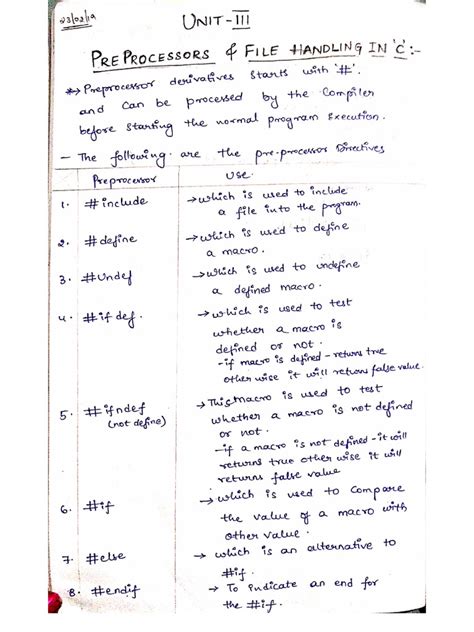 23/02/19
UNIT-III
PREPROCESSORS & FILE HANDLING IN 'C':-
Preprocessor derivatives starts with '#'.
and can be processed by the Compiler
before starting the normal program Execution.
- The following are the pre-processor Directives
Preprocessor Use
1. #include →which is used to include
a file into the program.
2. #define →which is used to define
a macro.
3. #Undef →which is used to undefine
a defined macro.
4. #if def. →which is used to test
whether a macro is
defined or not.
-if macro is defined - returns true
other wise it will return false value.
5. #ifndef →This macro is used to test
(not define) whether a macro is not defined
or not.
-if a macro is not defined - it will
returns true other wise it will
returns false value
6. #if → which is used to compare
the value of a macro with
other value.
7. #else → which is an alternative to
#if.
8. #endif → To indicate an end for
the #if.